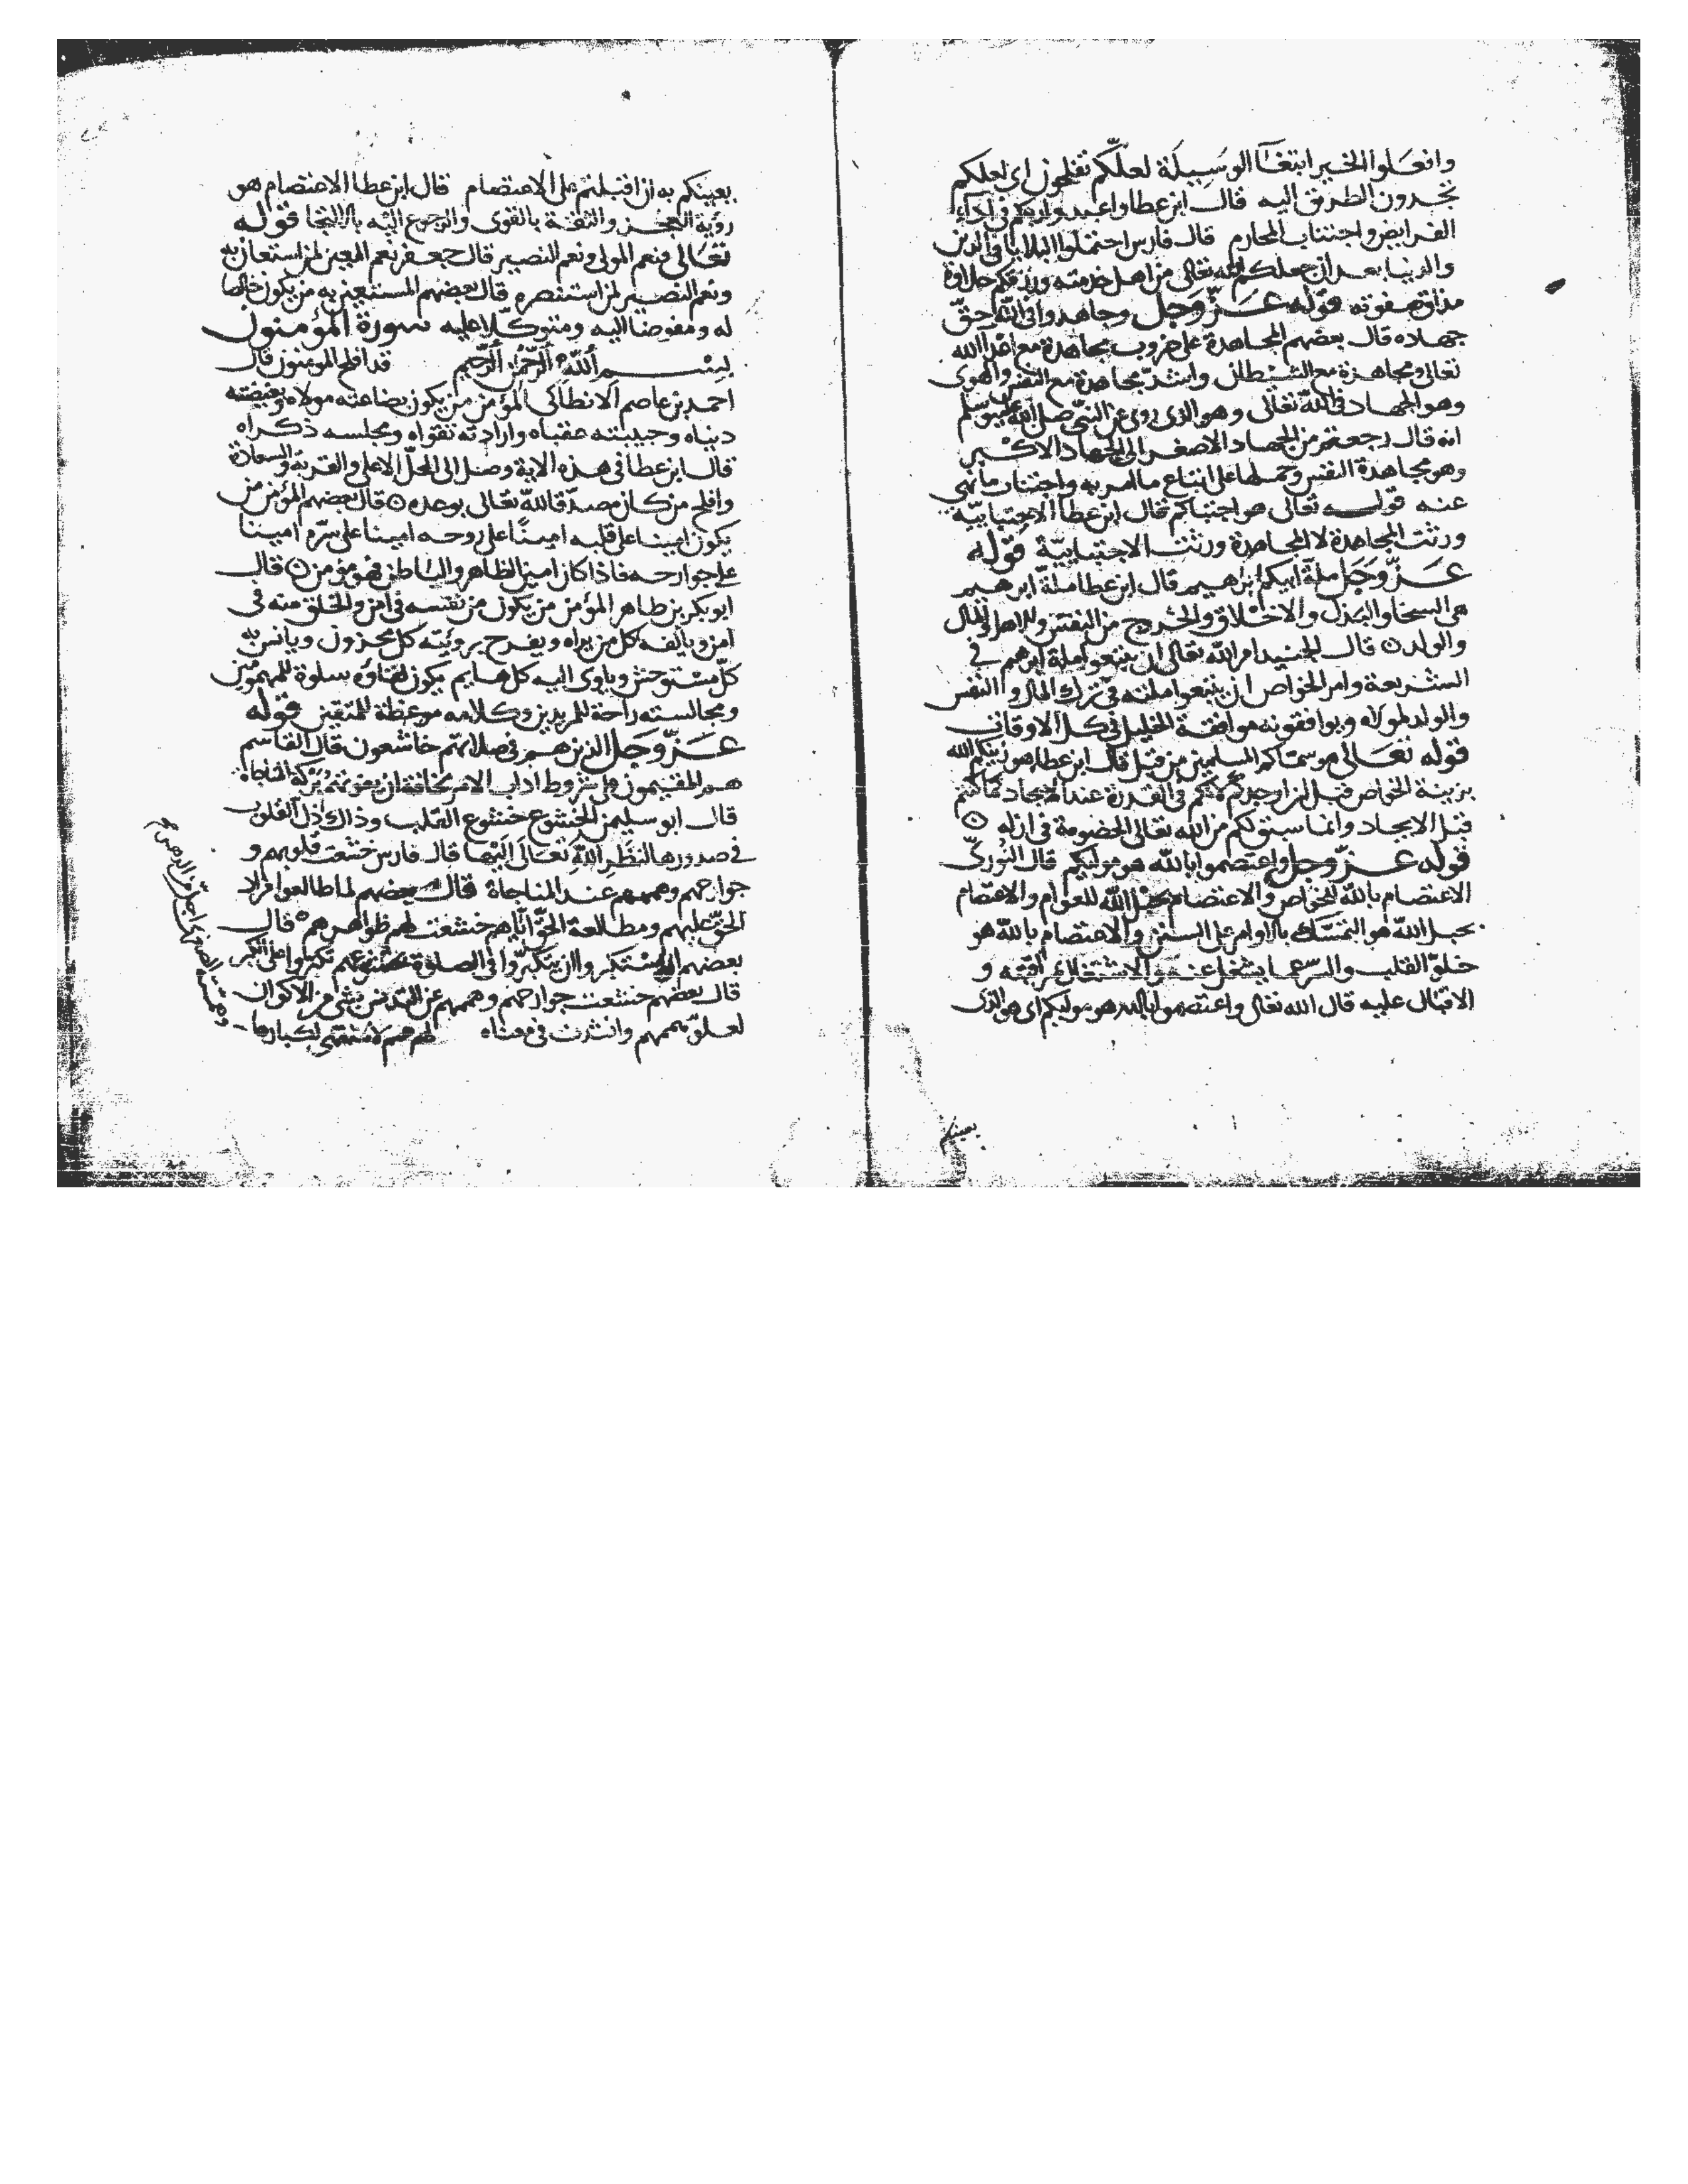 وافعلوا الخير ابتغاء الوسيلة لعلكم تفلحون اى لعلكم
تجدون الطريق اليه قال ابن عطا واعبدوا ربكم فى اداء
الفرايض واجتناب المحارم قال فارس احتملوا البلايا فى الدين
والدنيا بعد ان جعلكم الله تعالى من اهل خدمته ورزقكم حلاوة
قوله عز وجل وجاهدوا فى الله حق
جهاده قال بعضهم المجاهدة على ضروب مجاهدة مع اعدآ الله
تعالى ومجاهدة مع الشيطان واشد مجاهدة مع النفس والهوى
وهو الجهاد فى الله تعالى وهو الذى روى عن النبى صلى الله عليه وسلم
انه قال رجعتم من الجهاد الاصغر الى الجهاد الاكبر
وهو مجاهدة النفس وحملها على اتباع ما امر به واجتناب ما نهى
عنه قوله تعالى هو اجتباكم قال ابن عطا الاجتبايية
ورثت المجاهدة لا المجاهدة ورثت الاجتبايية قوله
عز وجل ملة ابيكم ابرهيم قال ابن عطا ملة ابرهيم
هى السخا والبذل والاخلاق والخروج من النفس والاهل والمال
والولد ۞ قال الجنيد امر الله تعالى ان يتبعوا ملة ابرهم فى
الشريعة وامر الخواص ان يتبعوا ملته فى ترك المال والنفس
والولد لمولاه ويوافقونه موافقة الخليل فى كل الاوقات
قوله تعالى هو سماكم المسلمين من قبل قال ابن عطا هو زينكم الله
بزينة الخواص قبل ان اوجدكم لانكم فى القدرة عند الايجاد كما كنتم
قبل الايجاد وانما سبق لكم من الله تعالى الخصوصة فى ازله ۞
قوله عز وجل واعتصموا بالله هو موليكم قال النورى
الاعتصام بالله للخواص والاعتصام بحبل الله للعوام والاعتصام
بحبل الله هو التمسك بالاوامر على السنن والاعتصام بالله هو
خلو القلب والسر عما يشغل عنه والاشتغال بمراقبته و
الاقبال عليه قال الله تعالى واعتصموا بالله هو موليكم اى هو الذى
يعينكم
يعينكم به ان اقبلتم على الاعتصام قال ابن عطا الاعتصام هو
رؤية العجز والثقة بالقوى والرجوع اليه بالالتجا قوله
تعالى فنعم المولى ونعم النصير قال جعفر نعم المعين لمن استعان به
ونعم النصير لمن استنصره قال بعضهم المستعين به من يكون خالصا
له ومفوضا اليه ومتوكلا عليه سورة المؤمنون
بسم الله الرحمن الرحيم قد افلح المومنون قال
احمد بن عاصم الانطاكى المؤمن من يكون بضاعته مولاه وبغيضته
دنياه وحبيبته عقباه وارادته تقواه ومجلسه ذكراه
قال ابن عطا فى هذه الاية وصل الى المحل الاعلى والقربة والسعادة
وافلح من كان مصدقا لله تعالى بوعده ۞ قال بعضهم المؤمن من
يكون امينا على قلبه امينا على روحه امينا على سره امينا
على جوارحه فاذا كان امين الظاهر والباطن فهو مؤمن ۞ قال
ابو بكر بن طاهر المؤمن من يكون من نفسه فى امن والخلق منه فى
امن ويالفه كل من يراه ويفرح برويته كل محزون ويانس به
كل مستوحش وياوى اليه كل هايم يكون لقاؤه سلوة للمهمومين
ومجالسته راحة للمريدين وكلامه موعظة للمتقين قوله
عز وجل الذين هم فى صلاتهم خاشعون قال القاسم
هم المقيمون على شروط اداب الامر مخافة ان يفوتهم بركة المناجاة
قال ابو سليمن الخشوع خشوع القلب وذاك اذل القلوب
فى صدورها النظر الله تعالى اليها قال فارس خشعت قلوبهم و
جوارحهم وهممهم عند المناجاة قال بعضهم لما طالعوا موارد
الحق عليهم ومطالعة الحق اياهم خشعت لهم ظواهرهم ۞ قال
بعضهم فى الصلوة
قال بعضهم خشعت جوارحهم وهممهم عن التدنس بشى من الاكوان
لعلو هممهم وانشدت فى معناه لهم همم لا منتهى لكبارها
وهمته الصغرى اجل من الدهر